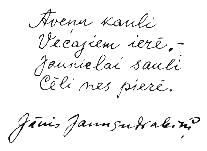 Avena kauli
Večajiem ierē, -
Jaunielai sauli
Cēli nes pierē.
Jānis Jaunsudrabiņš